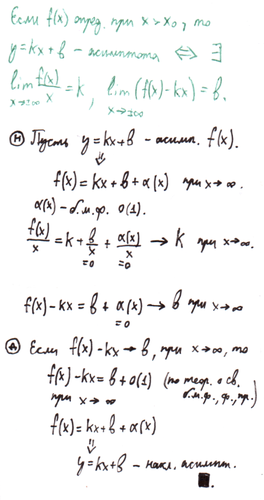 Если f(x) опред. при x > x₀, то
y = kx + b – асимптота ⟺ ∃
lim_{x→±∞} f(x)/x = k, lim_{x→±∞} (f(x) – kx) = b.
Ⓗ Пусть y = kx + b – асимп. f(x).
⇓
f(x) = kx + b + α(x) при x→∞.
α(x) – б.м.ф. o(1).
f(x)/x = k + b/x + α(x)/x → k при x→∞.
=0 =0
f(x) – kx = b + α(x) → b при x→∞
=0
Ⓓ Если f(x) – kx → b, при x→∞, то
f(x) – kx = b + o(1) (по теор. о св.
при x→∞ б.м.ф., ф., пр.)
f(x) = kx + b + α(x)
⇓
y = kx + b – накл. асимпт.
■.